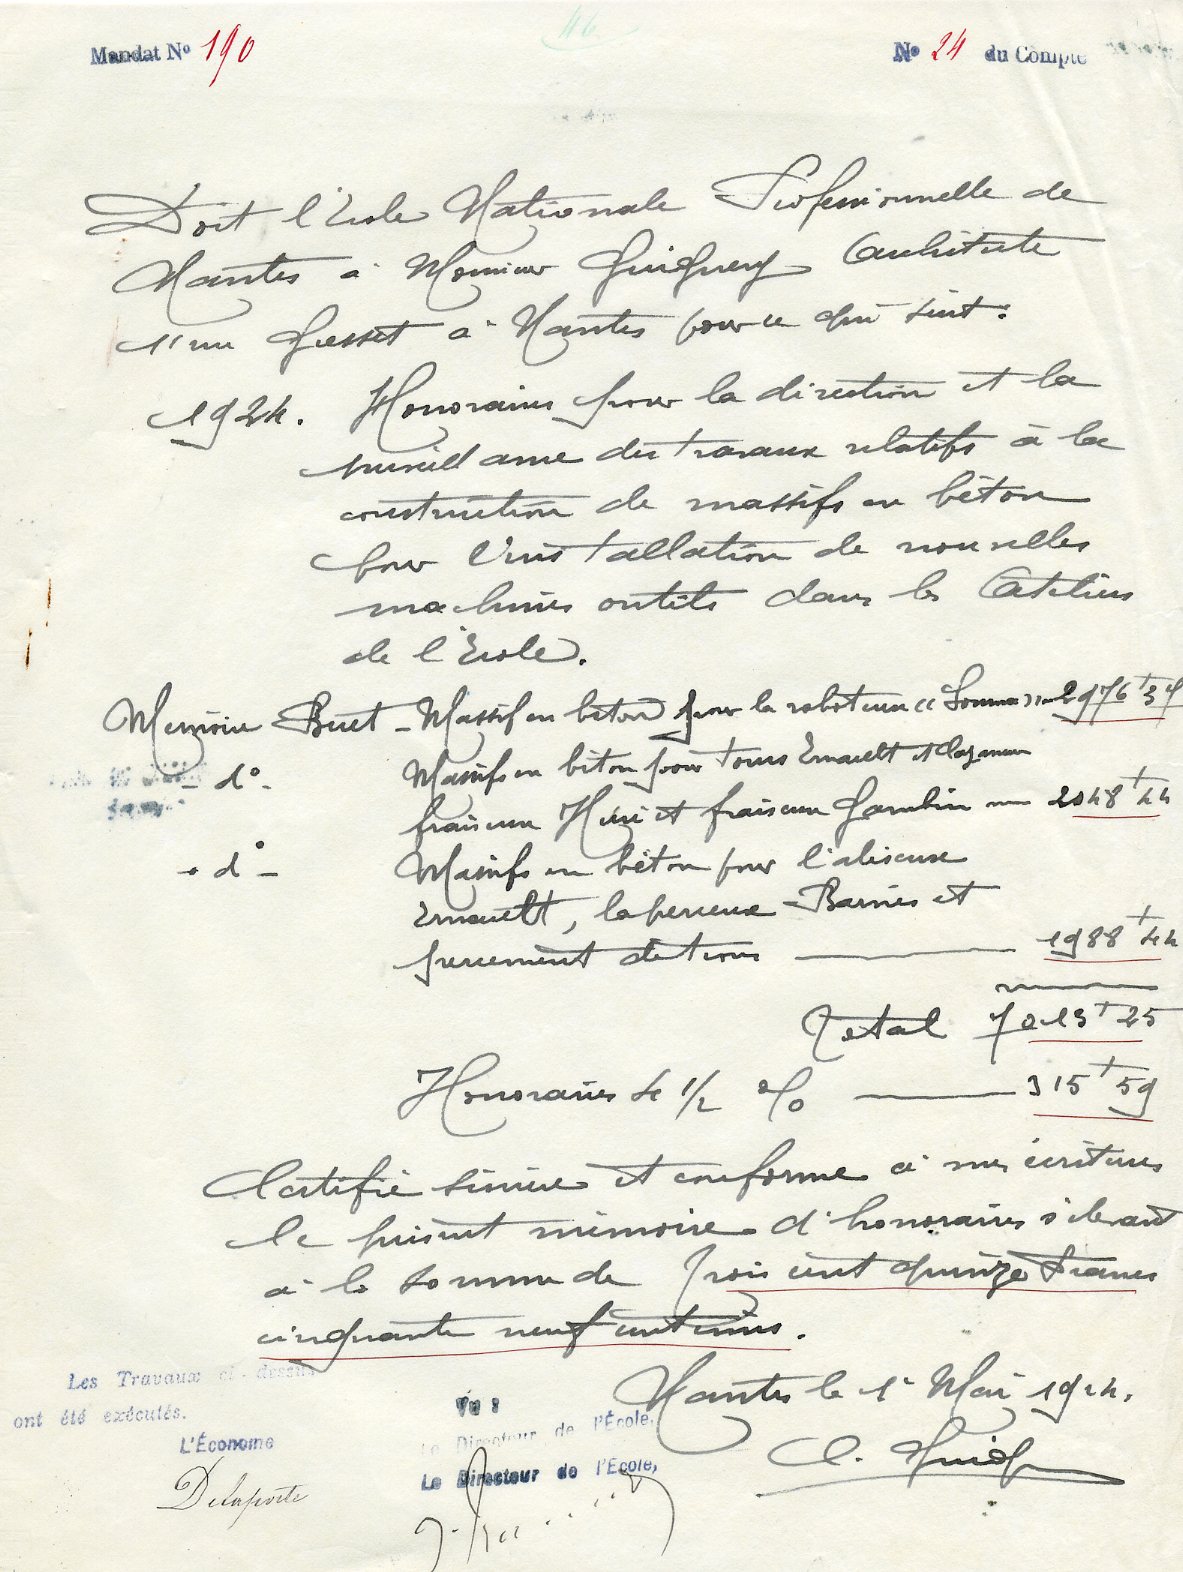 46
Mandat Nº 190
Nº 24 du Compte
Doit l'Ecole Nationale Professionnelle de
Nantes à Monsieur Guiguery Architecte
1 rue Gresset à Nantes pour ce qui suit :
1924. Honoraires pour la direction et la
surveillance des travaux relatifs à la
construction de massifs en béton
pour l'installation de nouvelles
machines outils dans les Ateliers
de l'Ecole.
Mémoire Buet - Massif en béton pour la raboteuse "Somua" 2976f37
- dº - Massifs en béton pour tours Ernault et Cazeneuve
fraiseuse Huré et fraiseuse Gambin 2048f44
- dº - Massifs en béton pour l'aléseuse
Ernault, la perceuse Barnes et
percement de trous 1988f44
Total 7013f25
Honoraires 4 1/2 % 315f59
Certifié sincère et conforme à mes écritures
le présent mémoire d'honoraires s'élevant
à la somme de Trois cent quinze francs
cinquante neuf centimes.
Nantes le 1r Mai 1924.
Les Travaux ci-dessus
ont été exécutés.
L'Économe
Delaporte
Vu :
Le Directeur de l'École,
Le Directeur de l'École,